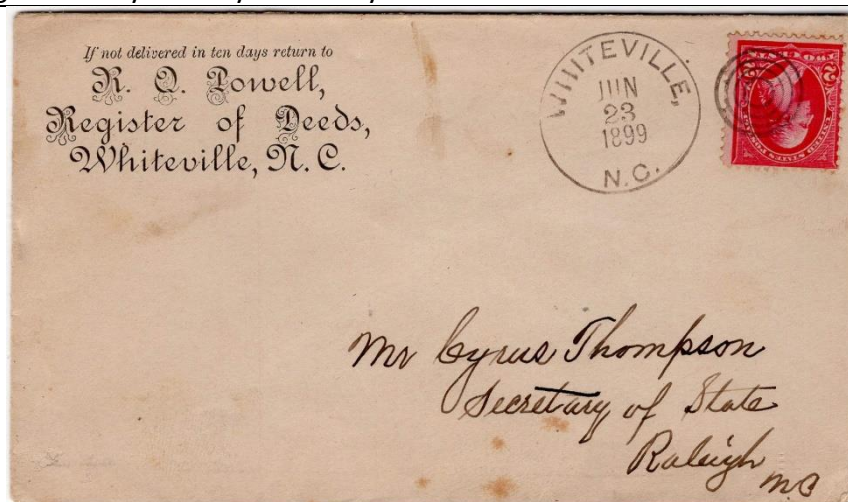 If not delivered in ten days return to
R. Q. Powell,
Register of Deeds,
Whiteville, N. C.
WHITEVILLE,
JUN
23
1899
N.C.
2 2
UNITED STATES POSTAGE
Mr Cyrus Thompson
Secretary of State
Raleigh
NC